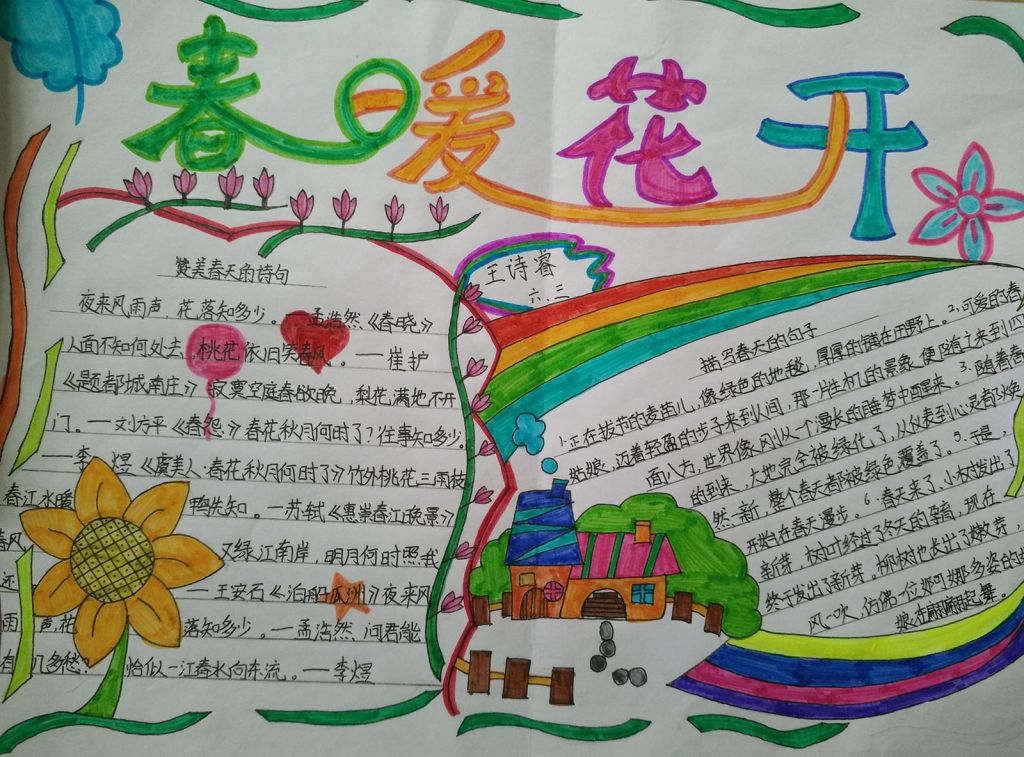 春日暖花开
王诗睿
六.三
赞美春天的诗句
夜来风雨声,花落知多少。——孟浩然《春晓》
人面不知何处去,桃花依旧笑春风。——崔护
《题都城南庄》寂寞空庭春欲晚,梨花满地不开
门。——刘方平《春怨》春花秋月何时了?往事知多少。
——李煜《虞美人·春花秋月何时了》竹外桃花三两枝
春江水暖鸭先知。——苏轼《惠崇春江晚景》
春风又绿江南岸,明月何时照我
还——王安石《泊船瓜洲》夜来风
雨声,花落知多少。——孟浩然、问君能
有几多愁?恰似一江春水向东流。——李煜
描写春天的句子
1.正在拔节的麦苗儿,像绿色的地毯,厚厚的铺在田野上。2.可爱的春
姑娘,迈着轻盈的步子来到人间,那一片生机的景象,便随之来到四
面八方,世界像刚从一个漫长的睡梦中醒来。3.随着春
的到来,大地完全被绿化了,从仪表到心灵都焕
然一新,整个春天都被绿色覆盖了。5.于是,
开始在春天漫步。6.春天来了,小树发出了
新芽,树叶经过了冬天的孕育,现在
终于发出了新芽。柳树也长出了嫩芽,
风一吹,仿佛一位婀娜多姿的姑
娘在翩翩起舞。